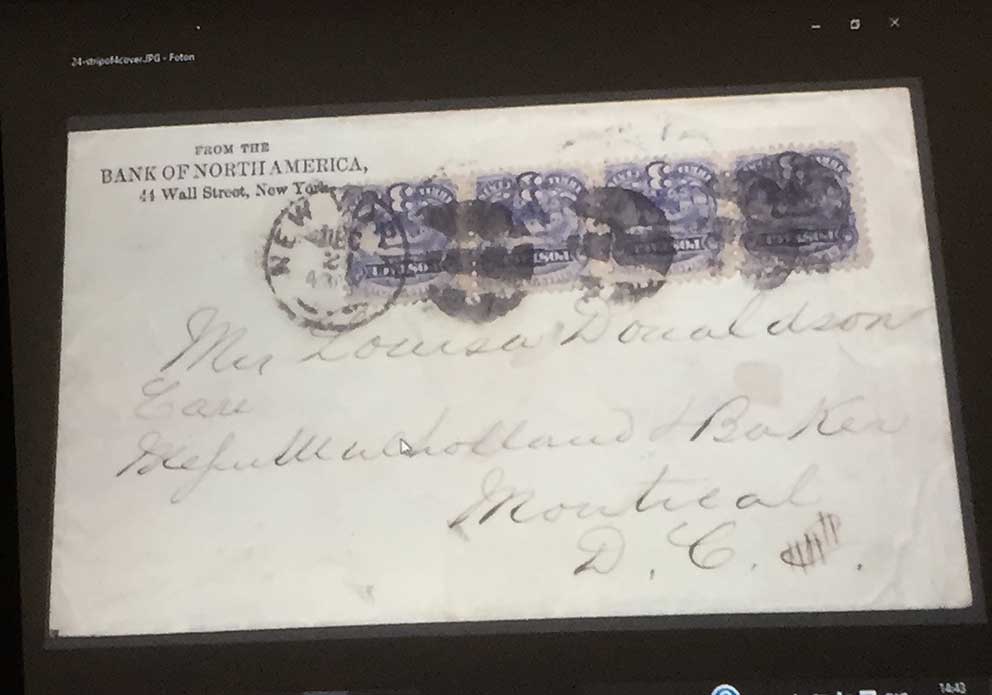 24-stripof4cover.JPG - Foton
FROM THE
BANK OF NORTH AMERICA,
44 Wall Street, New York
NEW
DEC
POSTAGE
POSTAGE
POSTAGE
POSTAGE
Mrs Louisa Donaldson
Care
Mulholland & Baker
Montreal
D. C.
14:43